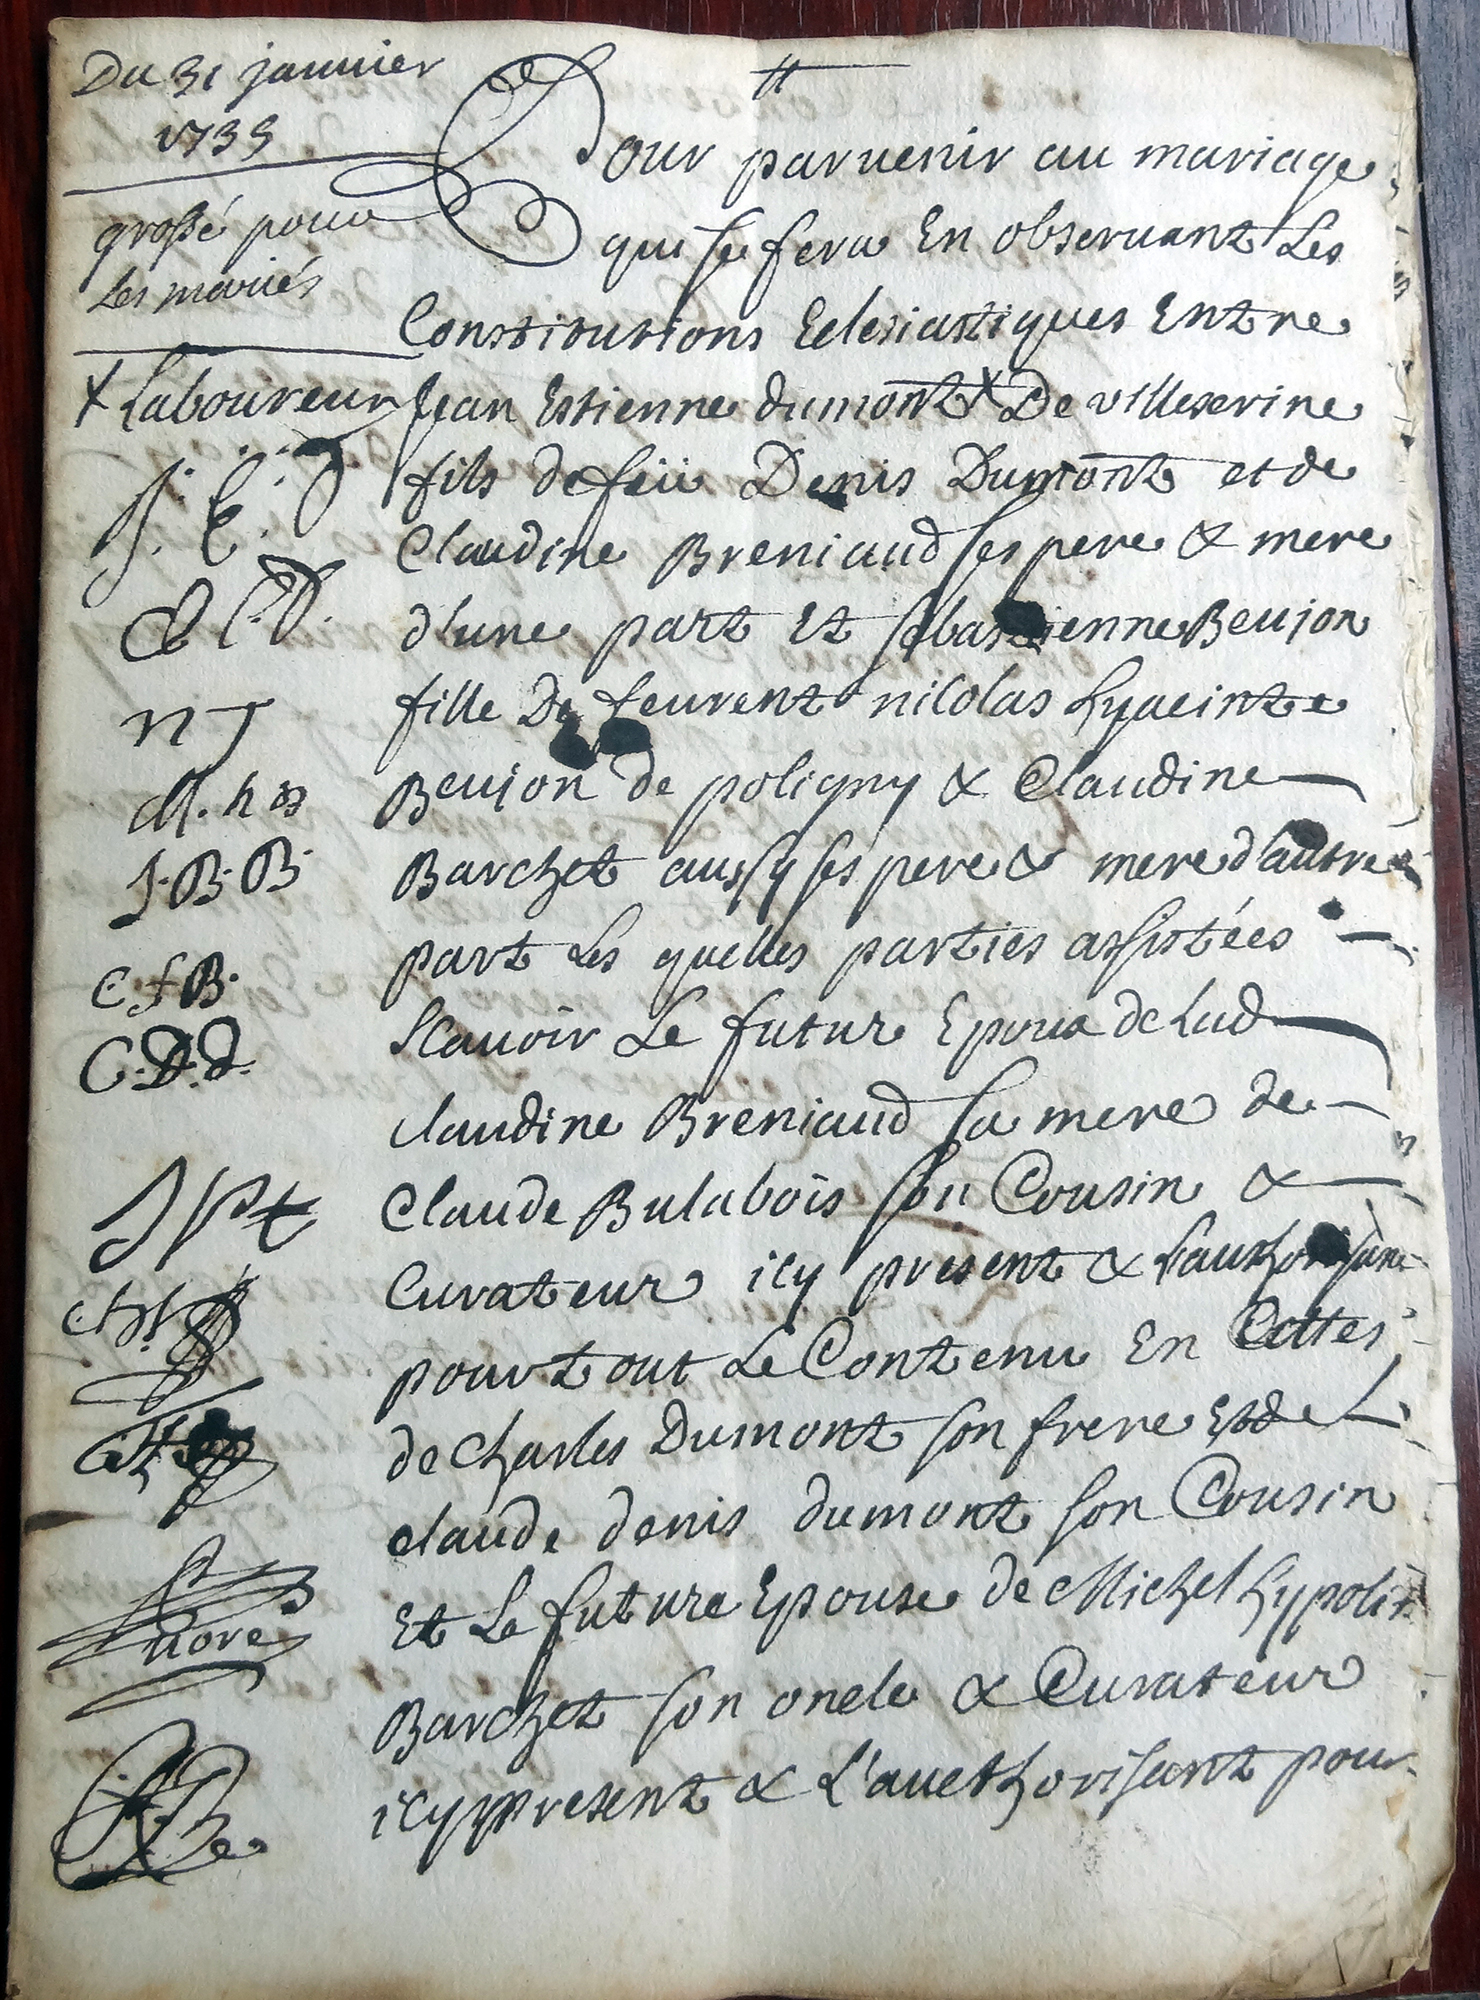 Du 31 janvier
1735
grossé pour
Les mariés
Pour parvenir au mariage
qui se fera En observant Les
Constitutions Eclesiastiques Entre
X Laboureur
Jean Estienne dumont X De villeserine
fils de feü Denis Dumont et de
Claudine Breniaud ses pere & mere
d'une part Et sebastienne Beujon
fille De Leurent nicolas hyacinte
Beujon de poligny & Claudine
Barchet aussy ses pere & mere d'autre
part Les quelles parties assistées
scavoir Le futur Epoux de lad
claudine Breniaud sa mere de
Claude Bulabois son Cousin &
Curateur icy present & L'authorisant
pour tout Le Contenu En Cettes
de charles Dumont son frere Et de
claude denis dumont son Cousin
Et La future Epouse de Michel hypolit
Barchet son oncle & Curateur
icy present & L'aucthorisant pour
J. E. D
C D.
n J
M. h B
J. B. B
C f B.
C. D. d.